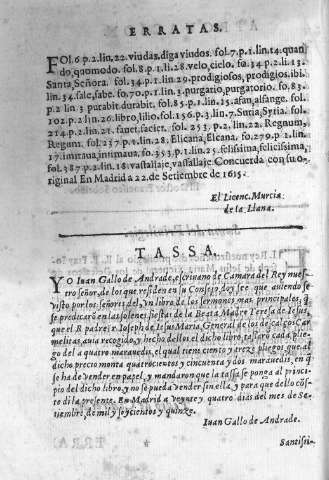 ERRATAS.
FOl. 6 p. 2. lin. 22. viudas, diga viudos. fol. 7. p. 1. lin. 14. quan
do, quomodo. fol. 8. p. 1. li. 28. velo, cielo. fo. 34 p. 2. li. 13.
Santa, Señora. fol. 34 p. 1. lin. 29. prodigiosos, prodigios, ibi.
lin. 34. sale, sabe. fo. 70. p. 1. lin. 3. purgario, purgatorio. fo. 83.
p. 2. lin 3 purabit, durabit. fol. 85. p. 1. lin. 25. afan, alfange. fol.
202. p. 2. lin 26. libro, lilio. fol. 156. p. 3. lin. 7. Suria, Syria. fol.
214. p. 2. lin. 21. sanct, facict. fol. 253. p. 2. lin. 22. Regnum,
Regum. fol. 237 p. 1. lin. 28. Elicana, Elcana. fo. 279. p. 1. lin.
17. imitaua, imitaua. fo. 353. p. 1. lin. 25. felissima, felicissima,
fol. 387. p. 2. lin. 18. vastallaje, vassallaje. Concuerda con su o-
riginal En Madrid a 22. de Setiembre de 1615.
El Licenc. Murcia
de la Llana.
TASSA.
YO Iuan Gallo de Andrade, escriuano de Camara del Rey nues
tro señor, de los que residen en su Consejo, doy fee que auiendose
visto por los señores del, vn libro de los sermones mas principales, q̃
se predicarõ en las solenes fiestas de la Beata Madre Teresa de Iesus,
que el R padre F. Ioseph de Iesus Maria, General de los descalços Car
melitas, auia recogido, y hecho dellos el dicho libro, tassarõ cada plie-
go del a quatro marauedis, el qual tiene ciento y rezẽ pliegos que al
dicho precio monta quatrocientos y cincuenta y dos marauedis, en q̃
se ha de vender en papel, y mandaron que la tassa se ponga al princi-
pio del dicho libro, y no se pueda vender sin ella, y para que dello cõs-
te di la presente. En Madrid a veynte y quatro dias del mes de Se-
tiembre, de mil y seyscientos y quinze.
Iuan Gallo de Andrade.
Santissi-